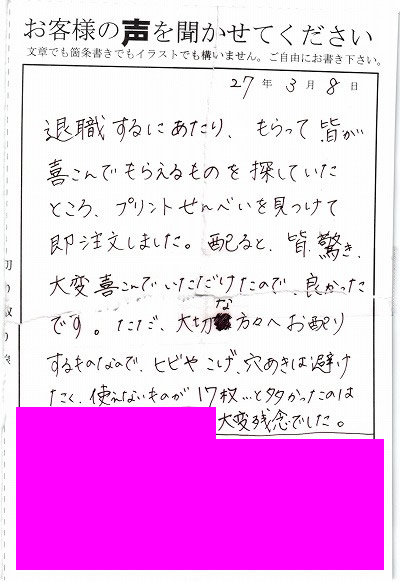 お客様の声を聞かせてください
文章でも箇条書きでもイラストでも構いません。ご自由にお書き下さい。
27年3月8日
退職するにあたり、もらって皆が
喜こんでもらえるものを探していた
ところ、プリントせんべいを見つけて
即注文しました。配ると、皆、驚き、
大変喜こんでいただけたので、良かった
です。ただ、大切な方々へお配り
するものなので、ヒビやこげ、穴あきは避け
たく、使えないものが17枚…と多かったのは
大変残念でした。
切り取り線